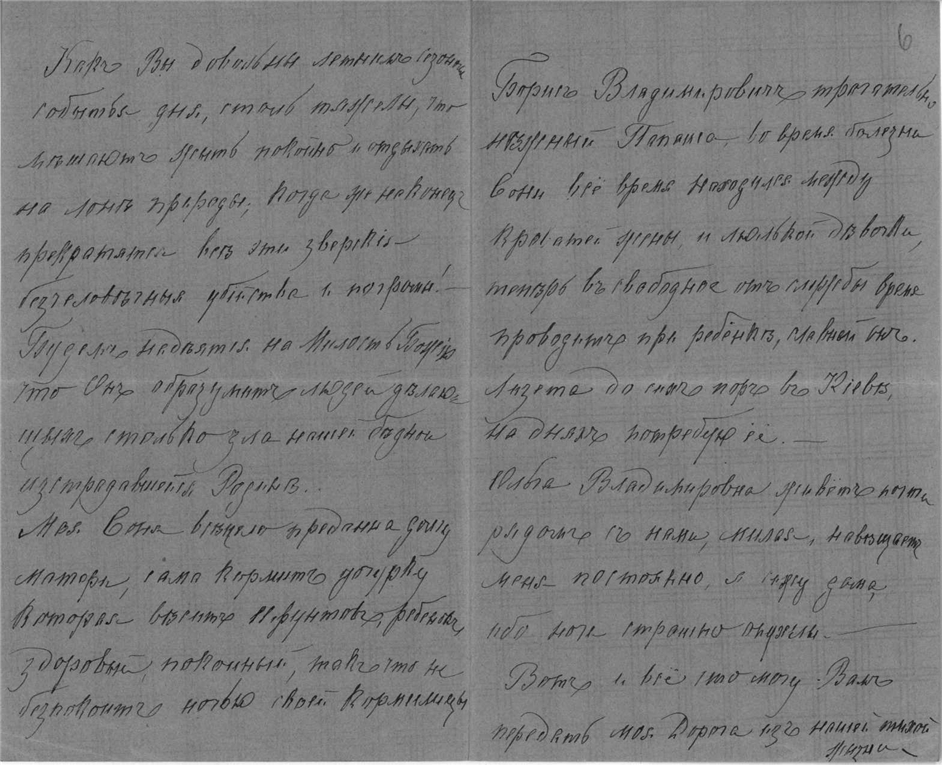 Какъ Вы довольны летнимъ сезономъ
событья дня, столь тяжелы, что
мѣшаютъ жить покойно и отдыхать
на лонѣ природы, когда же наконецъ
прекратятся всѣ эти зверскiя
безчеловѣчныя убiйства и погромы! —
Будемъ надѣятся на Милость Божiю
что Онъ образумитъ людей дѣлаю
щихъ столько зла нашей бѣдной
изстрадавшейся Родинѣ..
Моя Соня всѣцело преданна долгу
матери, сама кормитъ дочурку
которая вѣситъ фунтовъ, ребенокъ
здоровый, покойный, такъ что не
безпокоитъ ночью своей кормилицы
6
Борисъ Владимировичъ трогательно
нѣжный Папаша, во время болезни
Сони всё время находился между
кроватей жены, и люлькой дѣвочки,
теперь въ свободное отъ службы время
проводитъ при ребёнкѣ, славный онъ.
Лизета до сихъ поръ въ Кiевѣ,
на дняхъ потребую её. —
Ольга Владимировна живётъ почти
рядомъ съ нами, милая, навѣщаетъ
меня постоянно, я сижу дома,
ибо ноги страшно опухли. —
Вотъ и всё что могу Вамъ
передать моя Дорога изъ нашей тихой
жизни —